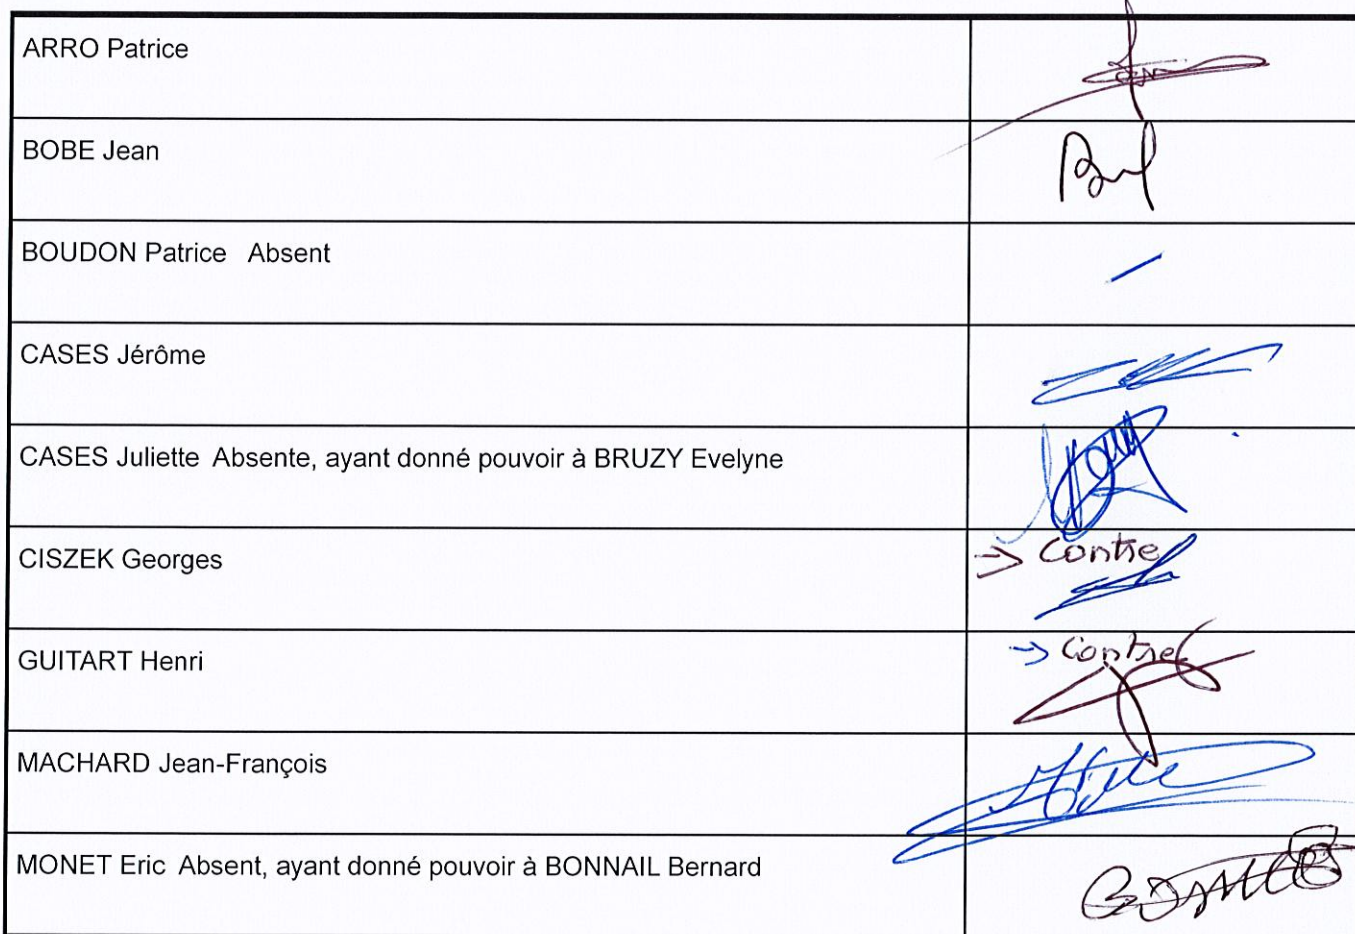 ARRO Patrice
BOBE Jean
BOUDON Patrice Absent
CASES Jérôme
CASES Juliette Absente, ayant donné pouvoir à BRUZY Evelyne
CISZEK Georges
→ Contre
GUITART Henri
→ Contre
MACHARD Jean-François
MONET Eric Absent, ayant donné pouvoir à BONNAIL Bernard